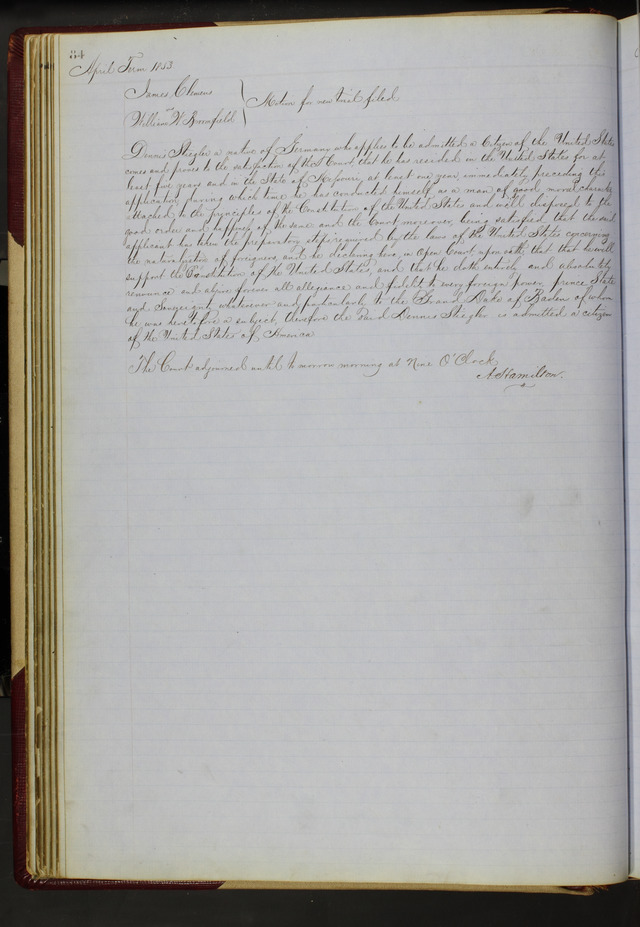 84
April Term 1853
James Clemens
vs
William W Greenfield
Motion for new trial filed
Dennis Stiegler a native of Germany who applies to be admitted a Citizen of the United States
comes and proves to the satisfaction of the Court, that he has resided in the United States for at
least five years and in the State of Missouri, at least one year, immediately preceding this
application, during which time he has conducted himself as a man of good moral character
attached to the principles of the Constitution of the United States and well disposed to the
good order and happiness of the same and the Court moreover, being satisfied that the said
applicant has taken the preparatory steps required by the laws of the United States concerning
the naturalization of foreigners, and he declaring here, in Open Court, upon oath, that that he will
support the Constitution of the United States, and that he doth entirely and absolutely
renounce and abjure forever all allegiance and fidelity to every foreign power, prince State
and Sovereignty whatsoever and particularly to the Grand Duke of Baden of whom
he was heretofore a subject, therefore the Said Dennis Stiegler is admitted a citizen
of the United States of America
The Court adjourned until tomorrow morning at Nine O'Clock
A. Hamilton.